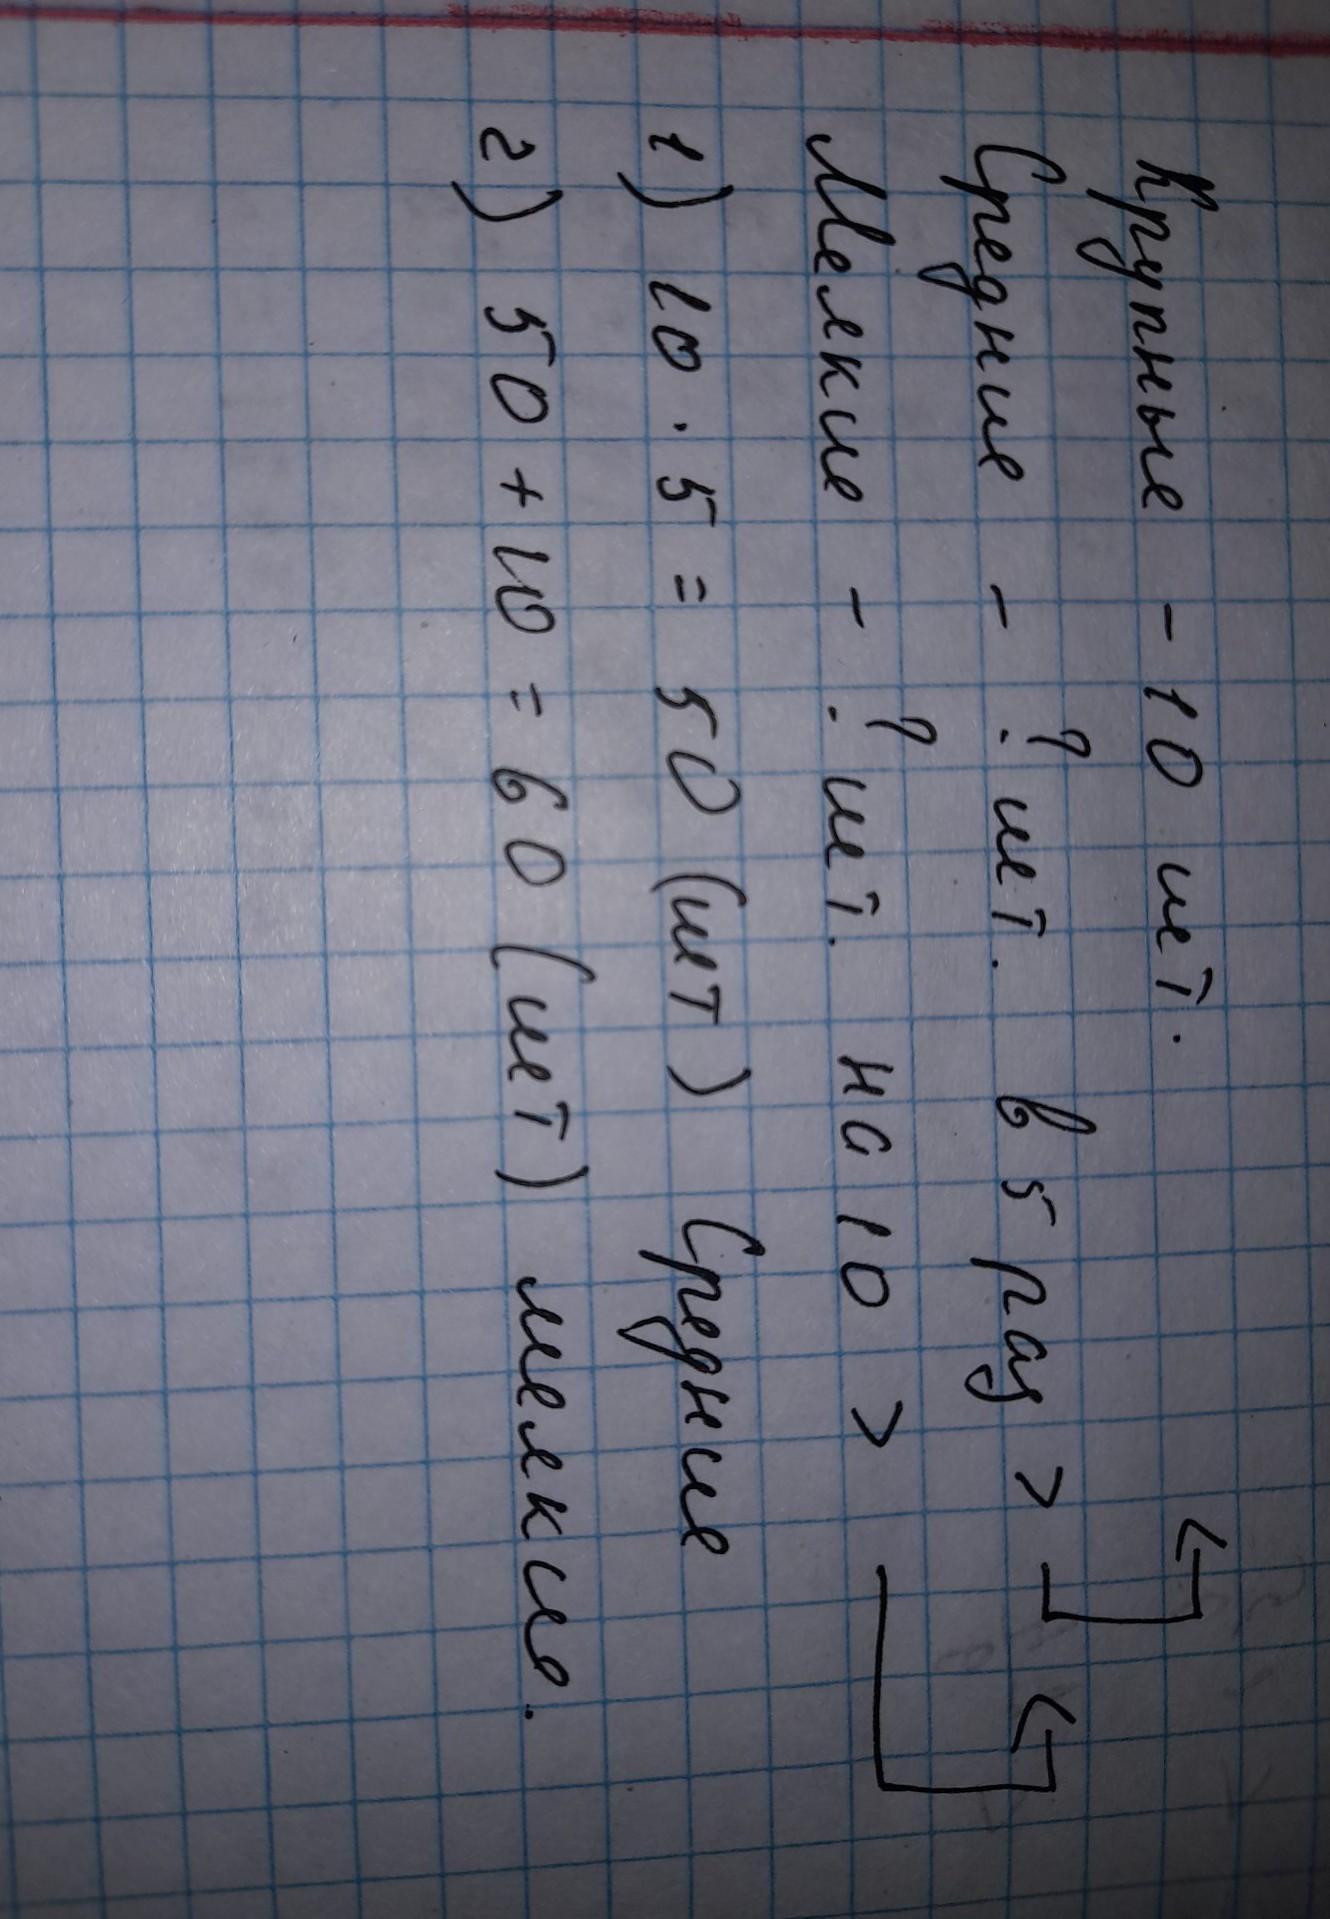 Крупные - 10 шт.
Средние - ? шт. в 5 раз >
Мелкие - ? шт. на 10 >
1) 10 · 5 = 50 (шт) Средние
2) 50 + 10 = 60 (шт) мелкие.